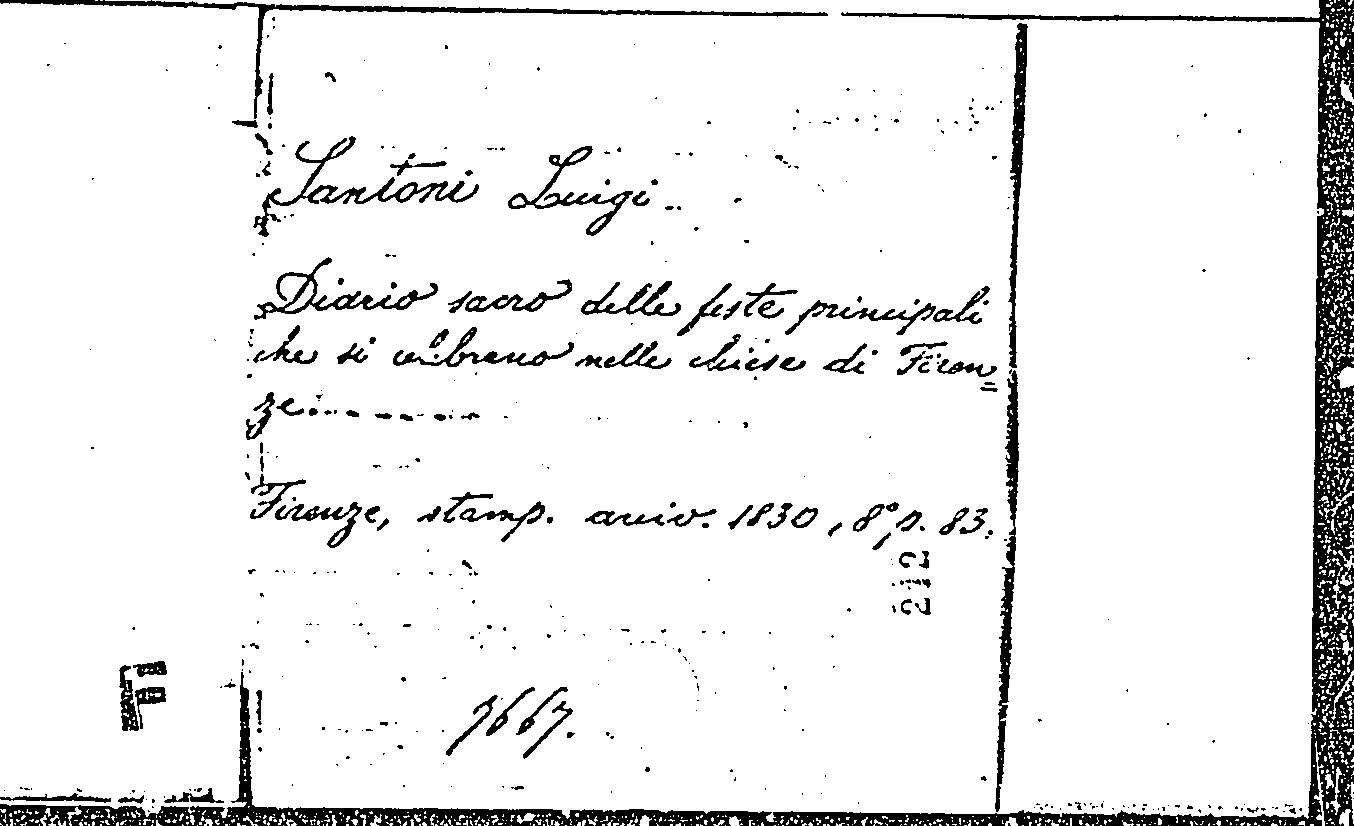 Santoni Luigi.
Diario sacro delle feste principali
che si celebrano nelle chiese di Firen=
ze.......
Firenze, stamp. arciv. 1830, 8°, p. 83.
212
F
7667.